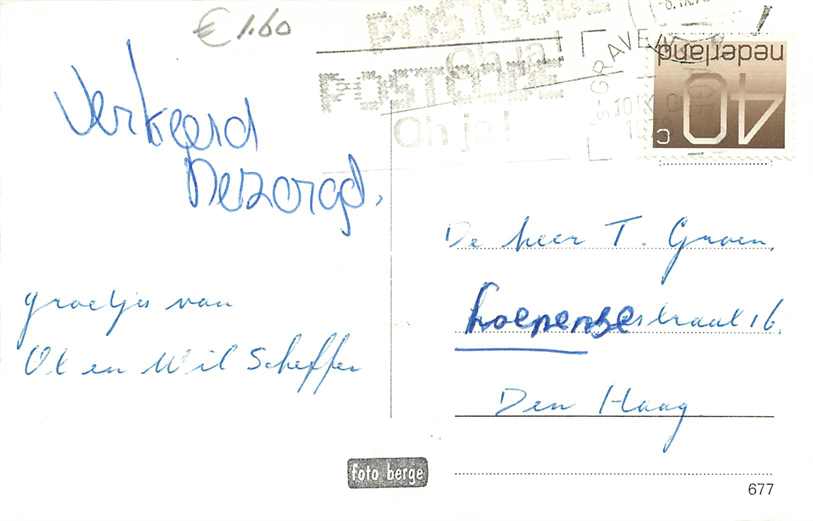 € 1.60
POSTCODE
Oh ja!
POSTCODE
Oh ja!
nederland
40 c
Verkeerd
bezorgd.
groetjes van
Ol en Wil Scheffer
De heer T. Groen,
straat 16.
Den Haag
foto berge
677